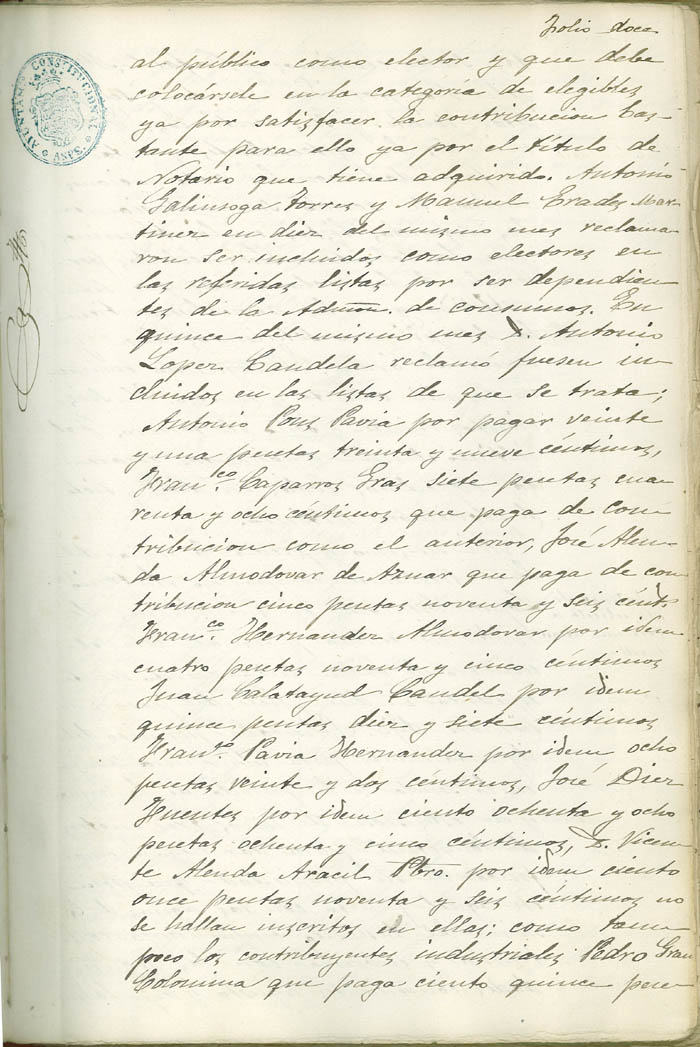 Folio doce
AYUNTAMIENTO CONSTITUCIONAL
ASPE
al público como elector y que debe
colocársele en la categoría de elegibles
ya por satisfacer la contribucion bas-
tante para ello ya por el título de
Notario que tiene adquirido. Antonio
Galinsoga Torres y Manuel Erades Mar-
tinez en diez del mismo mes reclama-
ron ser incluidos como electores en
las referidas listas por ser dependien-
tes de la Admon. de consumos. En
quince del mismo mes D. Antonio
Lopez Candela reclamó fuesen in-
cluidos en las listas de que se trata;
Antonio Pons Pavia por pagar veinte
y una pesetas treinta y nueve céntimos,
Fran.co Caparros Gras siete pesetas cua-
renta y ocho céntimos que paga de con-
tribucion como el anterior, José Alen-
da Almodovar de Aznar que paga de con-
tribucion cinco pesetas noventa y seis cént.s
Fran.co Hernandez Almodovar por idem
cuatro pesetas noventa y cinco céntimos
Juan Calatayud Candel por idem
quince pesetas diez y siete céntimos
Fran.co Pavia Hernandez por idem ocho
pesetas veinte y dos céntimos, José Diez
Fuentes por idem ciento ochenta y ocho
pesetas ochenta y cinco céntimos, D. Vicen-
te Alenda Aracil Pbro. por idem ciento
once pesetas noventa y seis céntimos no
se hallan inscritos en ellas; como tam-
poco los contribuyentes industriales Pedro Gran
Colomina que paga ciento quince pese-